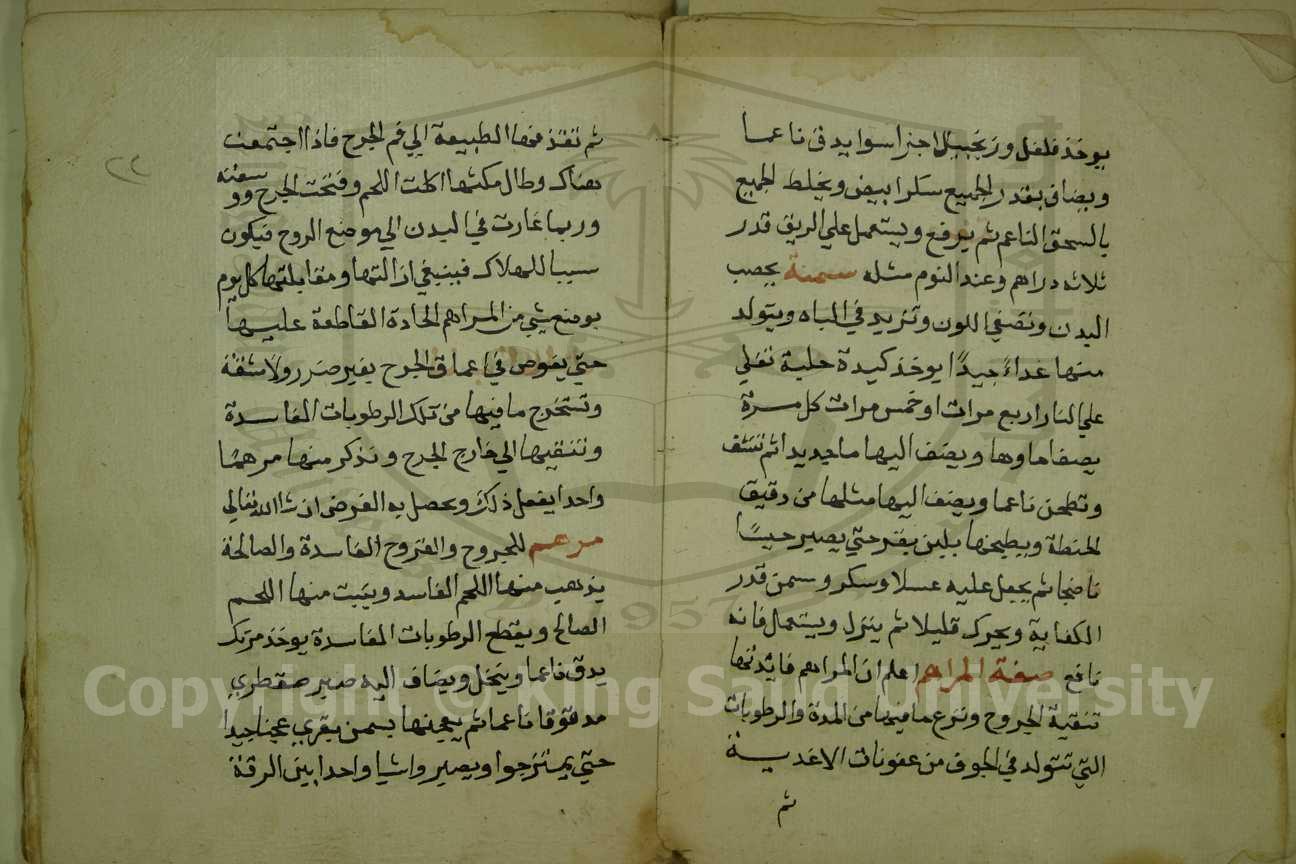 يوخذ فلفل وزنجبيل اجزا سوا يدق ناعما
ويضاف بقدر الجميع سكرا بيض ويخلط الجميع
بالسحق الناعم ثم يرفع ويستعمل علي الريق قدر
ثلاثه دراهم وعند النوم مثله سمنة يخصب
البدن وتصفي اللون وتزيد في الباه ويتولد
منها غداءً جيدًا يوخذ كيدة حلبة تغلي
علي النار اربع مرات او خمس مرات كل مرة
يصفا ماوها ويضف اليها ما جديد اثم تنشف
وتطحن ناعما ويضف اليها مثلها من دقيق
الحنطة ويطبخها بلبن بقر حتي يصير حيسًا
ناضجا ثم يجعل عليه عسلا وسكر وسمن قدر
الكفاية ويحرك قليلا ثم ينزل ويستعمل فانه
نافع صفة المراهم اعلم ان المراهم فائدتها
تنقية الجروح ونزع ما فيها من المدة والرطوبات
التي تتولد في الجوف من عفونات الاغدية
ثم
٢٢
ثم تنفذ منها الطبيعة الي فم الجرح فاذا اجتمعت
هناك وطال مكثها اكلت اللحم وفتحت الجرح ووسعته
وربما غارت في البدن الي موضع الروح فيكون
سببا للهلاك فينبغي ازالتها ومقابلتها كل يوم
بوضع شي من المراهم الحادة القاطعة عليها
حتي يغوص في اعماق الجرح بغير ضرر ولا مشقة
وتستخرج ما فيها من تلك الرطوبات الفاسدة
وتنقيها الي خارج الجرح ونذكر منها مرهمًا
واحدا يفعل ذلك ويحصل به الغرض ان شا الله تعالي
مرهم للجروح والقروح الفاسدة والصالحة
يذهب منها اللحم الفاسد وينبت منها اللحم
الصالح ويقطع الرطوبات الفاسدة يوخذ مرتك
يدق ناعما وينخل ويضاف اليه صبر صقطري
مدقوقا ناعما ثم يعجنها بسمن بقري عجنا جيدا
حتي يمتزجوا ويصيروا شيا واحدا بين الرقة
Copyright © King Saud University
1957